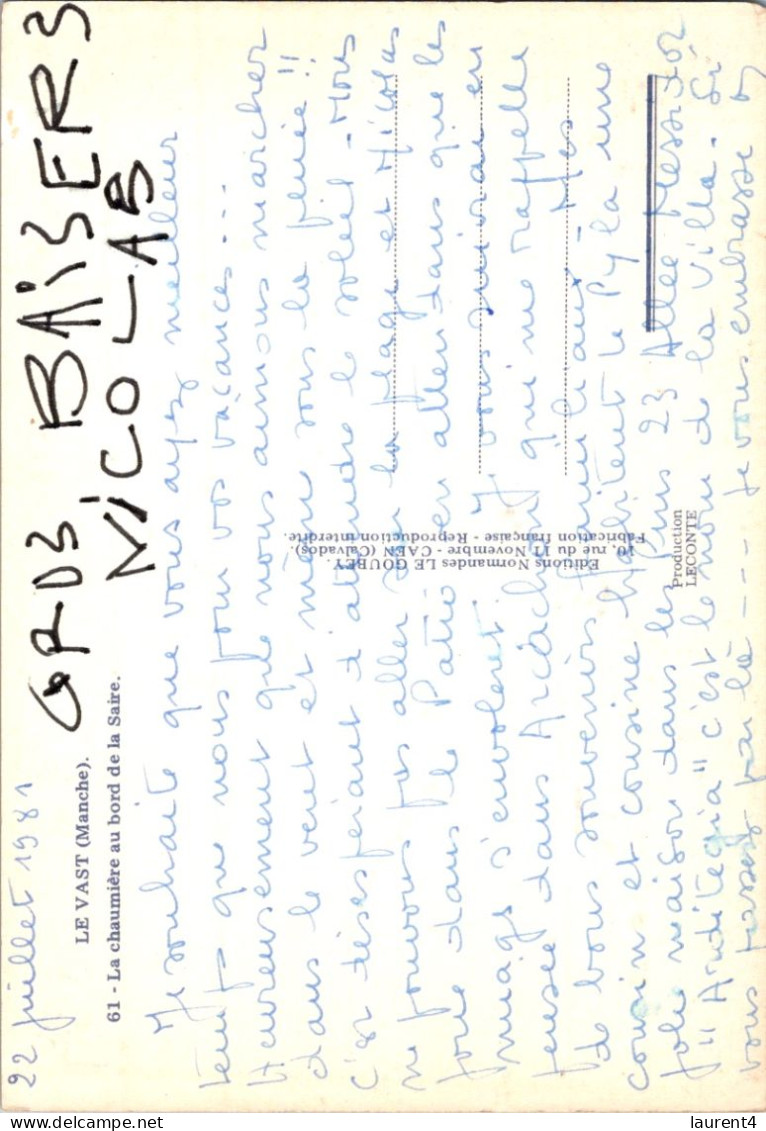 22 juillet 1981
LE VAST (Manche).
61 - La chaumière au bord de la Saire.
GRDS BAISERS
NICOLAS
Je souhaite que vous ayez meilleur
temps que nous pour vos vacances...
Heureusement que nous aimons marcher
dans le vent et même sous la pluie!!
C'est désespérant d'attendre le soleil - Nous
ne pouvons pas aller sur la plage et Nicolas
joue dans le Patio en attendant que les
nuages s'envolent. Je vous suivrai en
pensée dans Arcachon qui me rappelle
de bons souvenirs familiaux - Mes
cousin et cousine habitent le Pyla une
jolie maison dans les pins 23 Allée
" " c'est le nom de la Villa. Si
vous passez par là --- Je vous embrasse
Editions Normandes LE GOUBEY.
10, rue du 11 Novembre - CAEN (Calvados).
Fabrication française - Reproduction interdite.
Production
LECONTE
laurent4